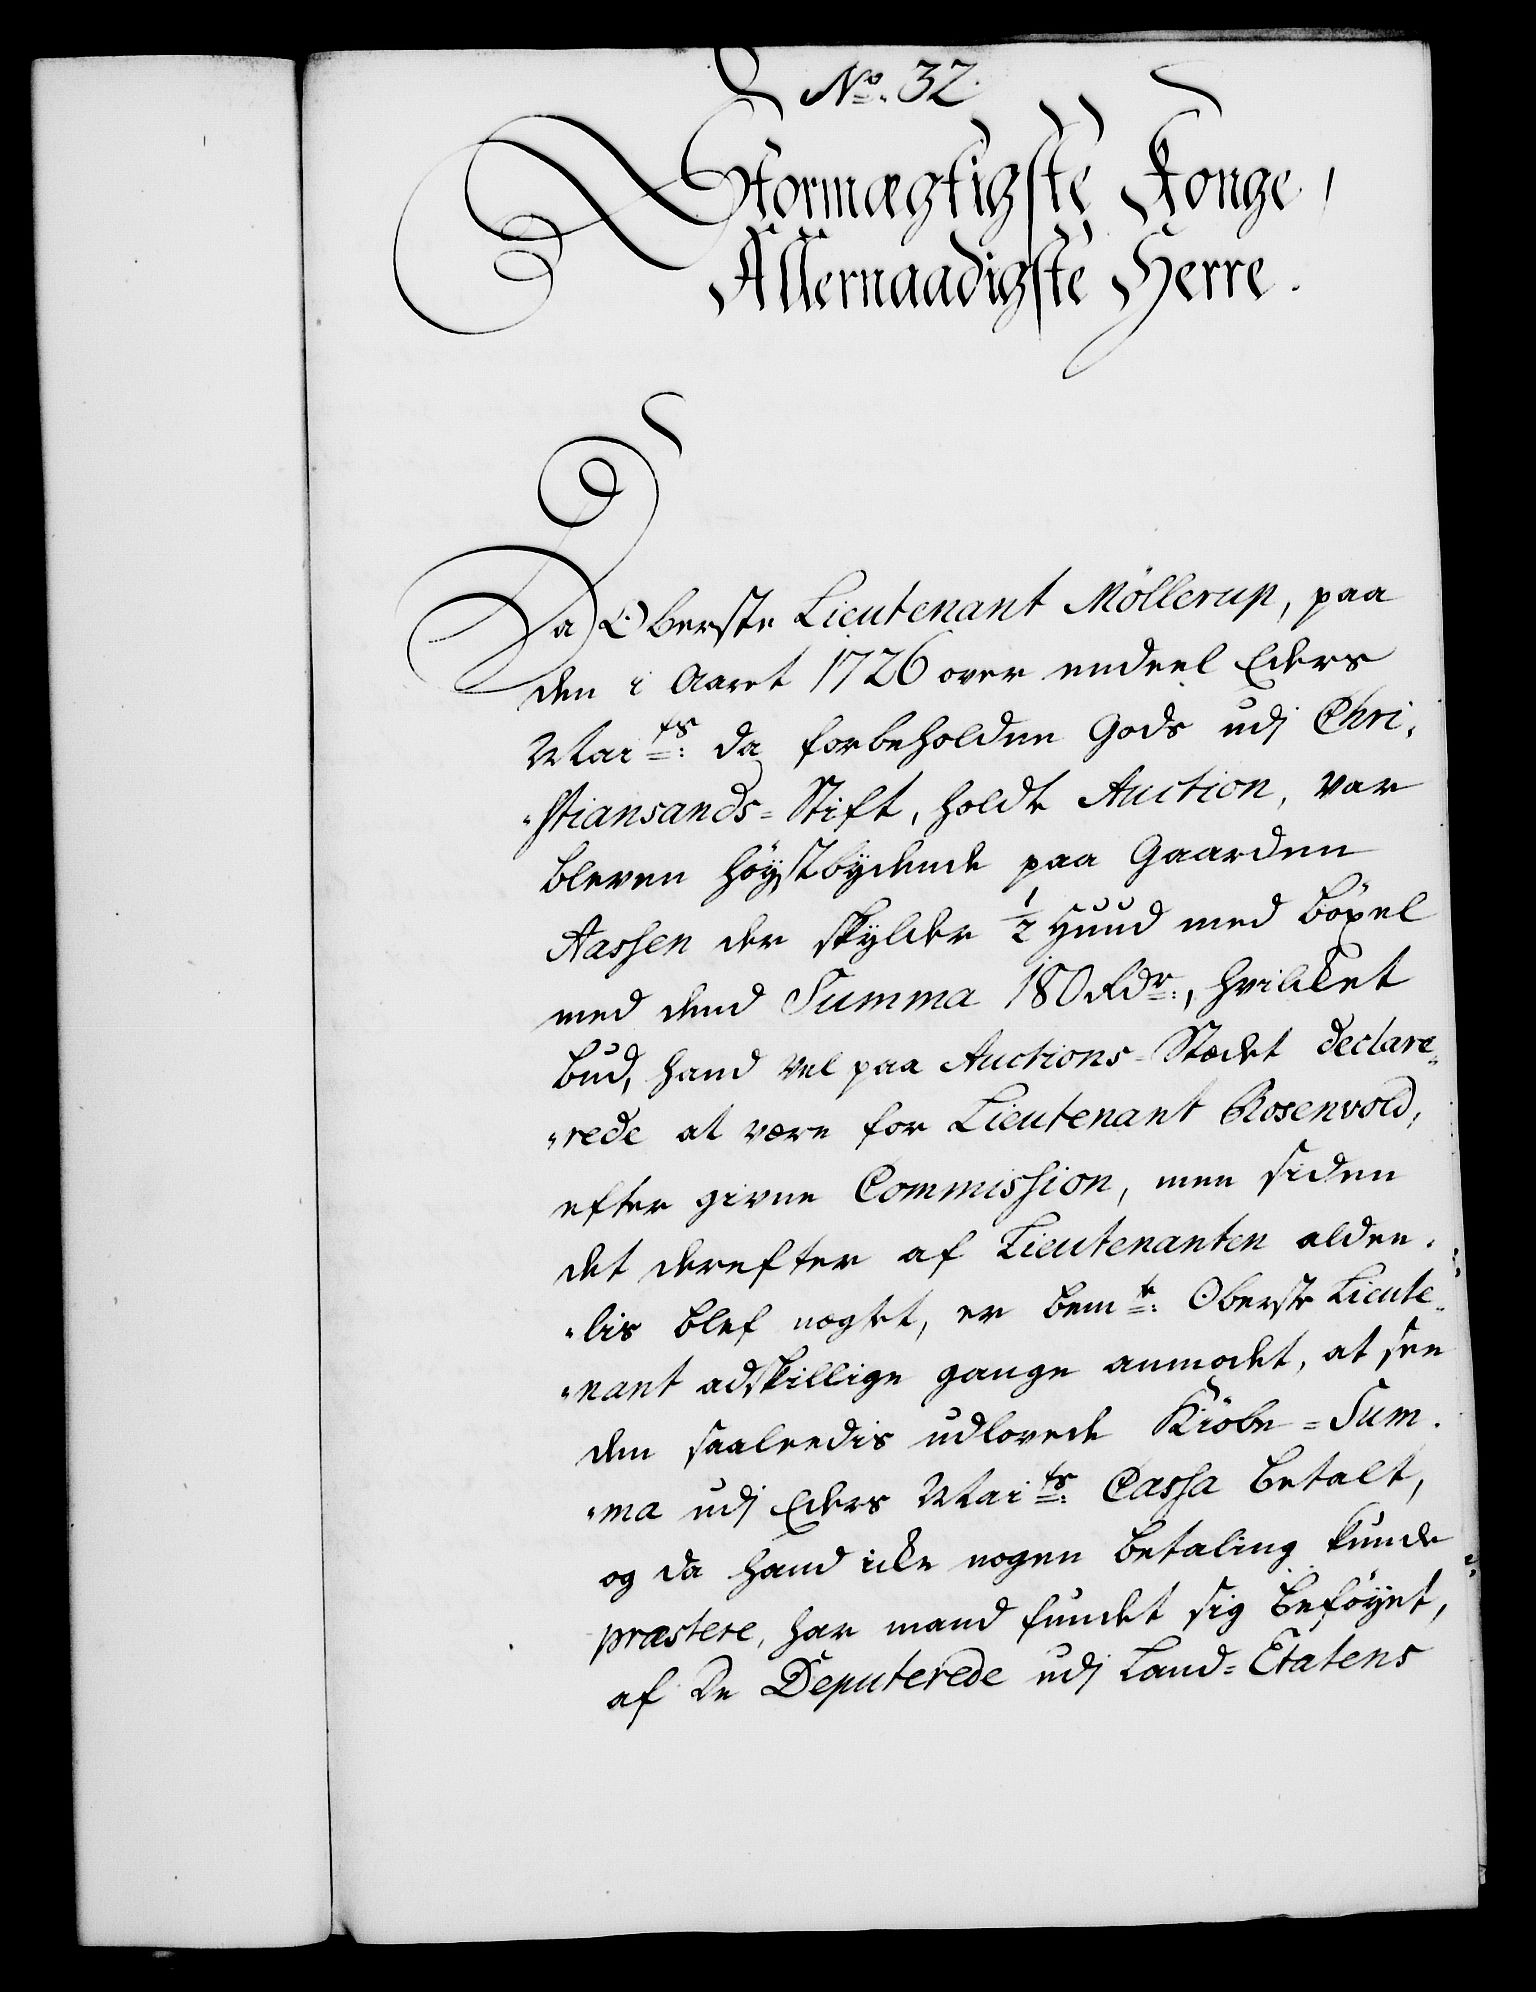 No. 32.
Stormægtigste Konge,
Allernaadigste Herre.
Da Oberste Lieutenant Möllerup, paa
den i Aaret 1726 over endeel Eders
Maits: da forbeholdne Gods udj Chri-
-stiansands-Stift, holdte Auction, var
bleven höystbydende paa Gaarden
Aassen der skylder 1/2 Huud med böxel
med dend Summa 180 Rdr:, hvilket
bud, hand vel paa Auctions-Stædet declare-
-rede at være for Lieutenant Rosenvold,
efter givne Commission, men siden
det derefter af Lieutenanten aldee-
-lis blef nægtet, er bemte: Oberste Lieute-
-nant adskillige gange anmodet, at see
den saaleedis udlovede Kiöbe-Sum-
-ma udj Eders Maits: Cassa betalt,
og da hand icke nogen betaling kunde
præstere, har mand fundet sig beföyet,
af De Deputerede udj Land-Etatens